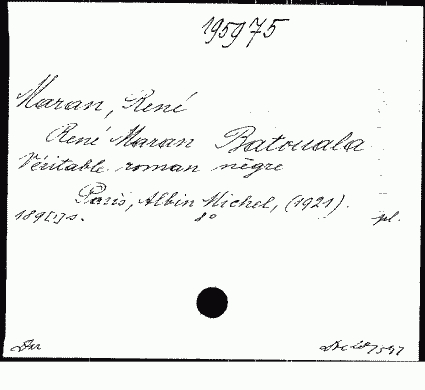 195975
Maran, René
René Maran Batouala
Véritable roman nègre
Paris, Albin Michel, (1921).
189[1]s. 8° pl.